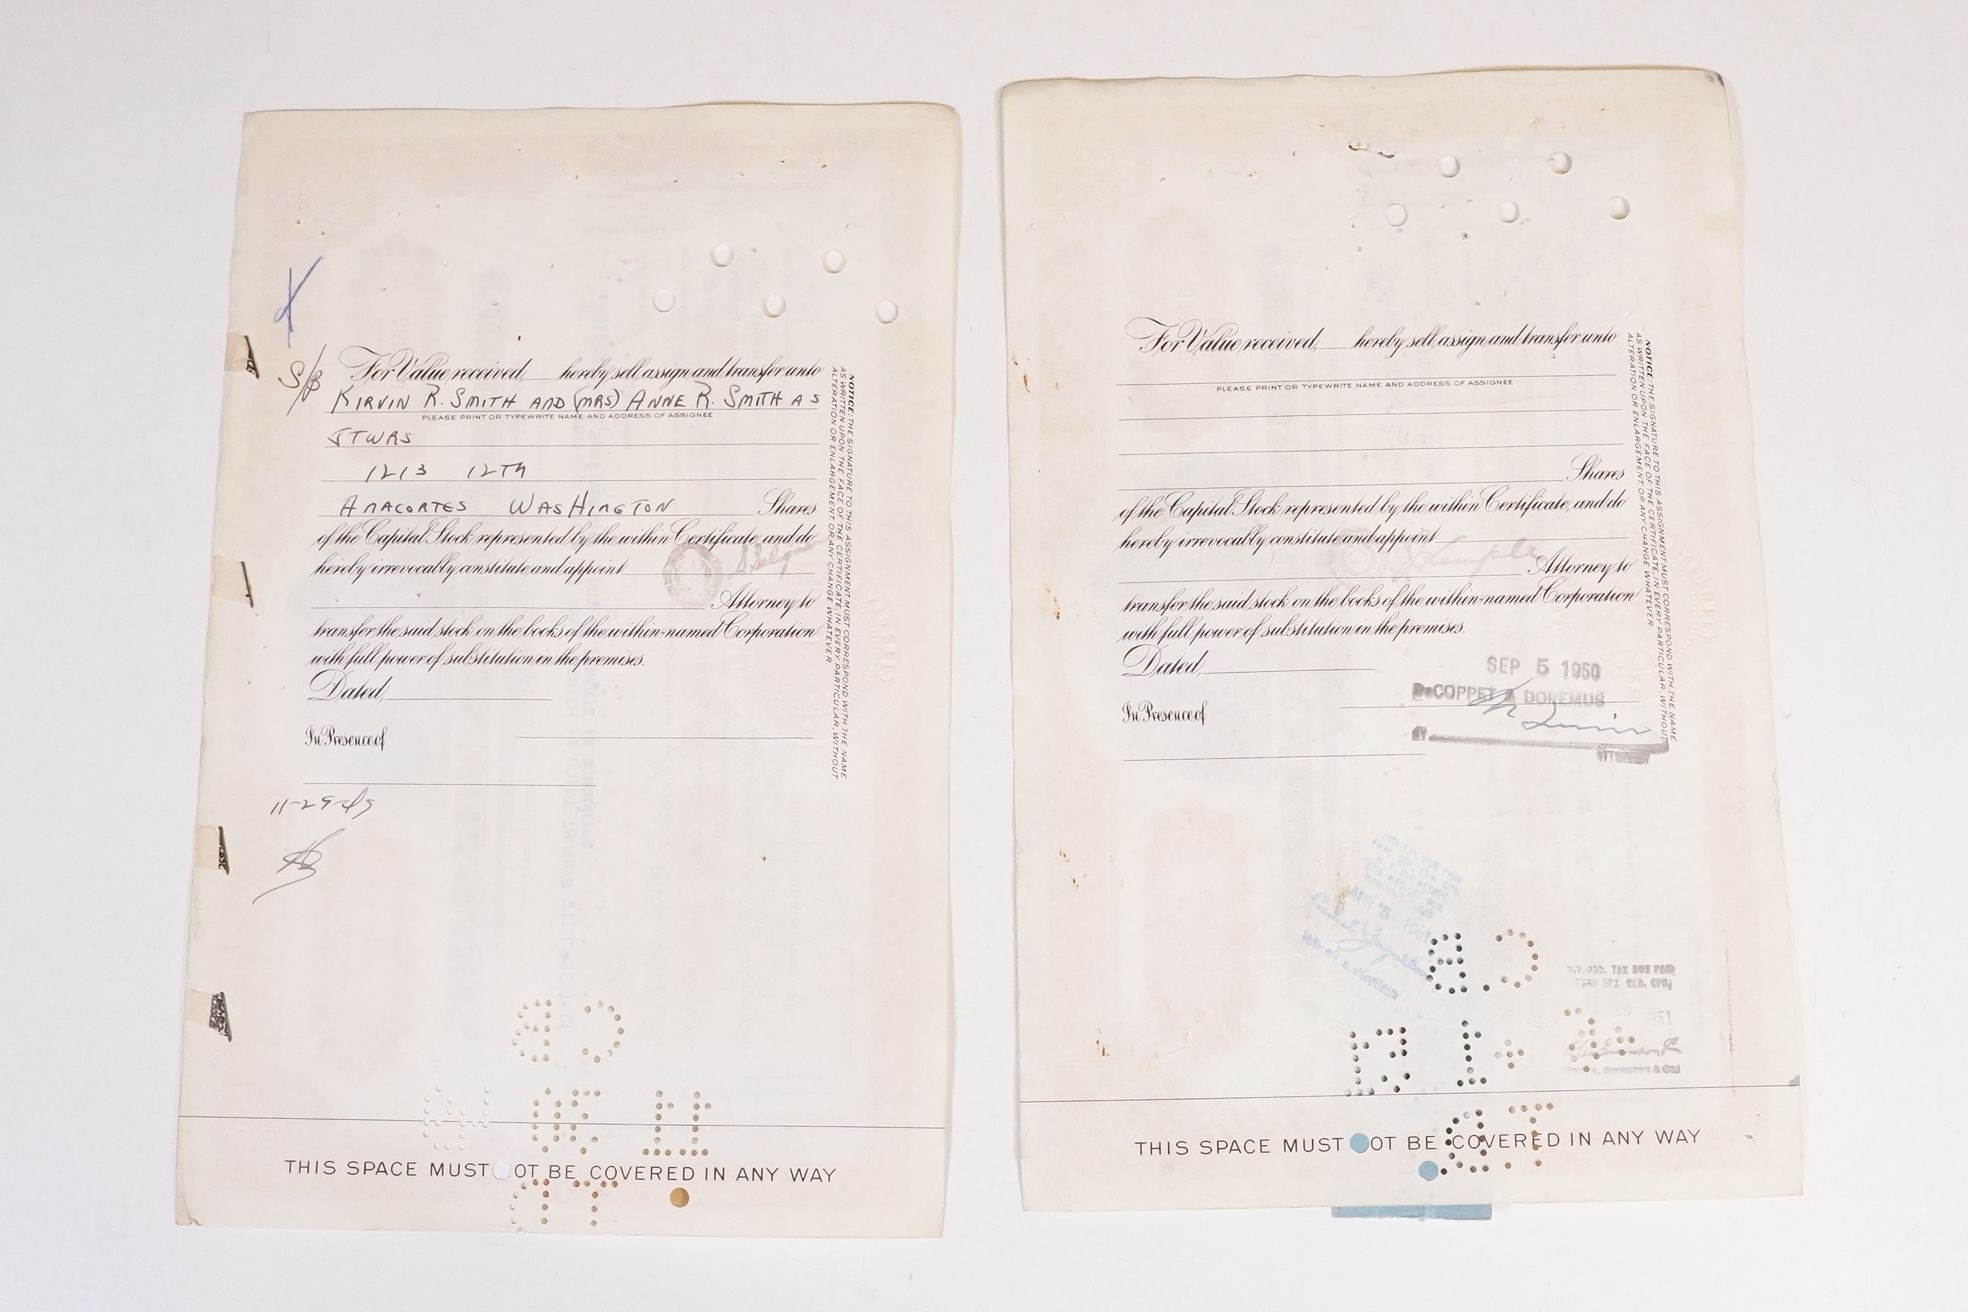 S/B
For Value received, hereby sell assign and transfer unto
KIRVIN R. SMITH AND (MRS) ANNE R. SMITH AS
PLEASE PRINT OR TYPEWRITE NAME AND ADDRESS OF ASSIGNEE
JTWRS
1213 12TH
ANACORTES WASHINGTON Shares
of the Capital Stock represented by the within Certificate, and do
hereby irrevocably constitute and appoint
Attorney to
transfer the said stock on the books of the within-named Corporation
with full power of substitution in the premises.
Dated,
In Presence of
11-29-49
NOTICE: THE SIGNATURE TO THIS ASSIGNMENT MUST CORRESPOND WITH THE NAME
AS WRITTEN UPON THE FACE OF THE CERTIFICATE, IN EVERY PARTICULAR, WITHOUT
ALTERATION OR ENLARGEMENT, OR ANY CHANGE WHATEVER.
THIS SPACE MUST OT BE COVERED IN ANY WAY
For Value received, hereby sell, assign and transfer unto
PLEASE PRINT OR TYPEWRITE NAME AND ADDRESS OF ASSIGNEE
Shares
of the Capital Stock represented by the within Certificate, and do
hereby irrevocably constitute and appoint
Attorney to
transfer the said stock on the books of the within-named Corporation
with full power of substitution in the premises.
Dated,
SEP 5 1950
DeCOPPET & DOREMUS
In Presence of
BY
WITNESS
NOTICE: THE SIGNATURE TO THIS ASSIGNMENT MUST CORRESPOND WITH THE NAME
AS WRITTEN UPON THE FACE OF THE CERTIFICATE, IN EVERY PARTICULAR, WITHOUT
ALTERATION OR ENLARGEMENT, OR ANY CHANGE WHATEVER.
TAX DUE PAID
THIS SPACE MUST OT BE COVERED IN ANY WAY